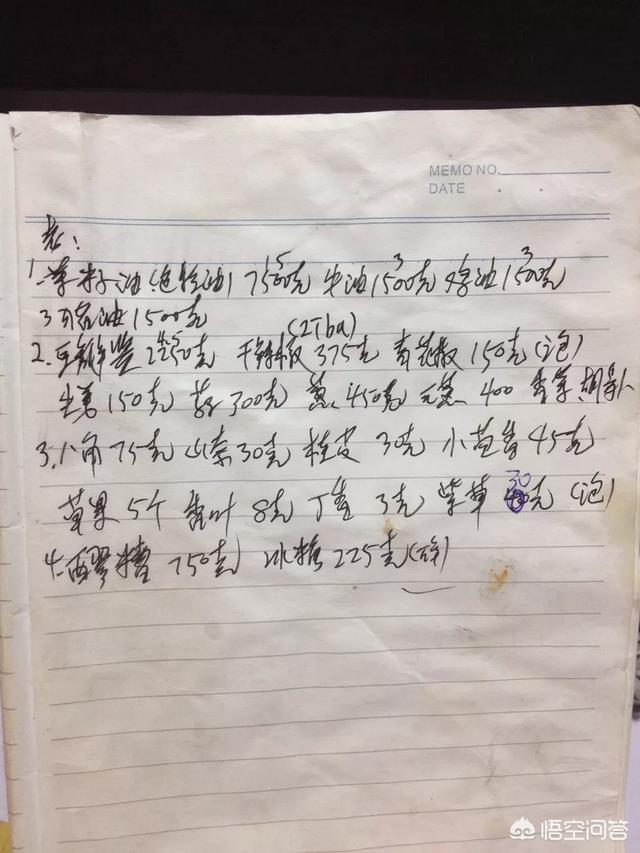 MEMO NO.
DATE . .
老:
1.菜籽油(色拉油)7500克 牛油1500克 鸡油1500克
1500克
2.豆瓣酱2250克 干辣椒375克 青花椒150克(泡)
生姜150克 蒜300克 葱450克 元葱400 香菜
3.八角75克 山奈30克 桂皮3克 小茴香45克
草果5个 香叶8克 丁香3克 紫草30克(泡)
4.醪糟750克 冰糖225克
悟空问答